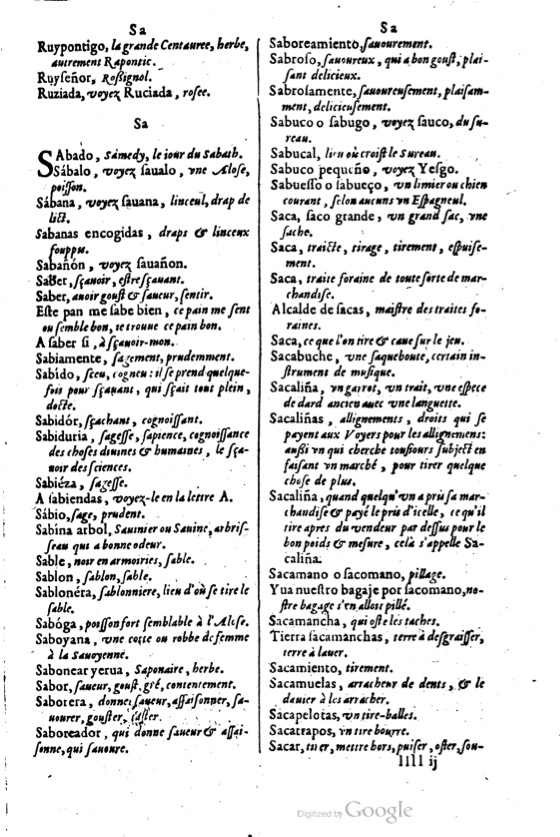 Sa
Ruypontigo, la grande Centauree, herbe,
autrement Rapontic.
Ruyseñor, Rossignol.
Ruziada, voyez Ruciada, rosee.
Sa
SAbado, Sámedy, le iour du Sabath.
Sábalo, voyez saualo, vne Alose,
poisson.
Sábana, voyez sauana, linceul, drap de
lict.
Sabanas encogidas, draps & linceux
fouppu.
Sabañón, voyez sauañon.
Saber, sçauoir, estre sçauant.
Saber, auoir goust & saueur, sentir.
Este pan me sabe bien, ce pain me sent
ou semble bon, ie trouue ce pain bon.
A saber si, à sçauoir-mon.
Sabiamente, sagement, prudemment.
Sabído, sceu, cogneu: il se prend quelque-
fois pour sçauant, qui sçait tout plein,
docte.
Sabidór, sçachant, cognoissant.
Sabiduria, sagesse, sapience, cognoissance
des choses diuines & humaines, le sça-
uoir des sciences.
Sabiéza, sagesse.
A sabiendas, voyez-le en la lettre A.
Sábio, sage, prudent.
Sabina arbol, Sauinier ou Sauine, arbris-
seau qui a bonne odeur.
Sable, noir en armoiries, sable.
Sablon, sablon, sable.
Sablonéra, sablonniere, lieu d'où se tire le
sable.
Sabóga, poisson fort semblable à l'Alose.
Saboyana, vne cotte ou robbe de femme
à la Sauoyenne.
Sabonear yerua, Saponaire, herbe.
Sabor, saueur, goust, gré, contentement.
Saborear, donner saueur, assaisonner, sa-
uourer, gouster, taster.
Saboreador, qui donne saueur & assai-
sonne, qui sauoure.
Sa
Saboreamiento, sauourement.
Sabroso, sauoureux, qui a bon goust, plai-
sant delicieux.
Sabrosamente, sauoureusement, plaisam-
ment, delicieusement.
Sabuco o sabugo, voyez sauco, du su-
reau.
Sabucal, lieu où croist le Sureau.
Sabuco pequeño, voyez Yesgo.
Sabuesso o sabueço, vn limier ou chien
courant, selon aucuns vn Espagneul.
Saca, saco grande, vn grand sac, vne
sache.
Saca, traicte, tirage, tirement, espuise-
ment.
Saca, traite foraine de toute sorte de mar-
chandise.
Alcalde de sacas, maistre des traites fo-
raines.
Saca, ce que l'on tire & caue sur le jeu.
Sacabuche, vne saqueboute, certain in-
strument de musique.
Sacaliña, vn garrot, vn trait, vne espece
de dard ancien auec vne languette.
Sacaliñas, allignements, droits qui se
payent aux Voyers pour les allignemens:
aussi vn qui cherche tousiours subject en
faisant vn marché, pour tirer quelque
chose de plus.
Sacaliña, quand quelqu'vn a pris sa mar-
chandise & payé le pris d'icelle, ce qu'il
tire apres du vendeur par dessus pour le
bon poids & mesure, cela s'appelle Sa-
caliña.
Sacamano o sacomano, pillage.
Yua nuestro bagaje por sacomano, no-
stre bagage s'en alloit pillé.
Sacamancha, qui oste les taches.
Tierra sacamanchas, terre à desgraisser,
terre à lauer.
Sacamiento, tirement.
Sacamuelas, arracheur de dents, & le
dauier à les arracher.
Sacapelotas, vn tire-balles.
Sacatrapos, vn tire bourre.
Sacar, tirer, mettre hors, puiser, oster, sou-
llll ij
Digitized by Google